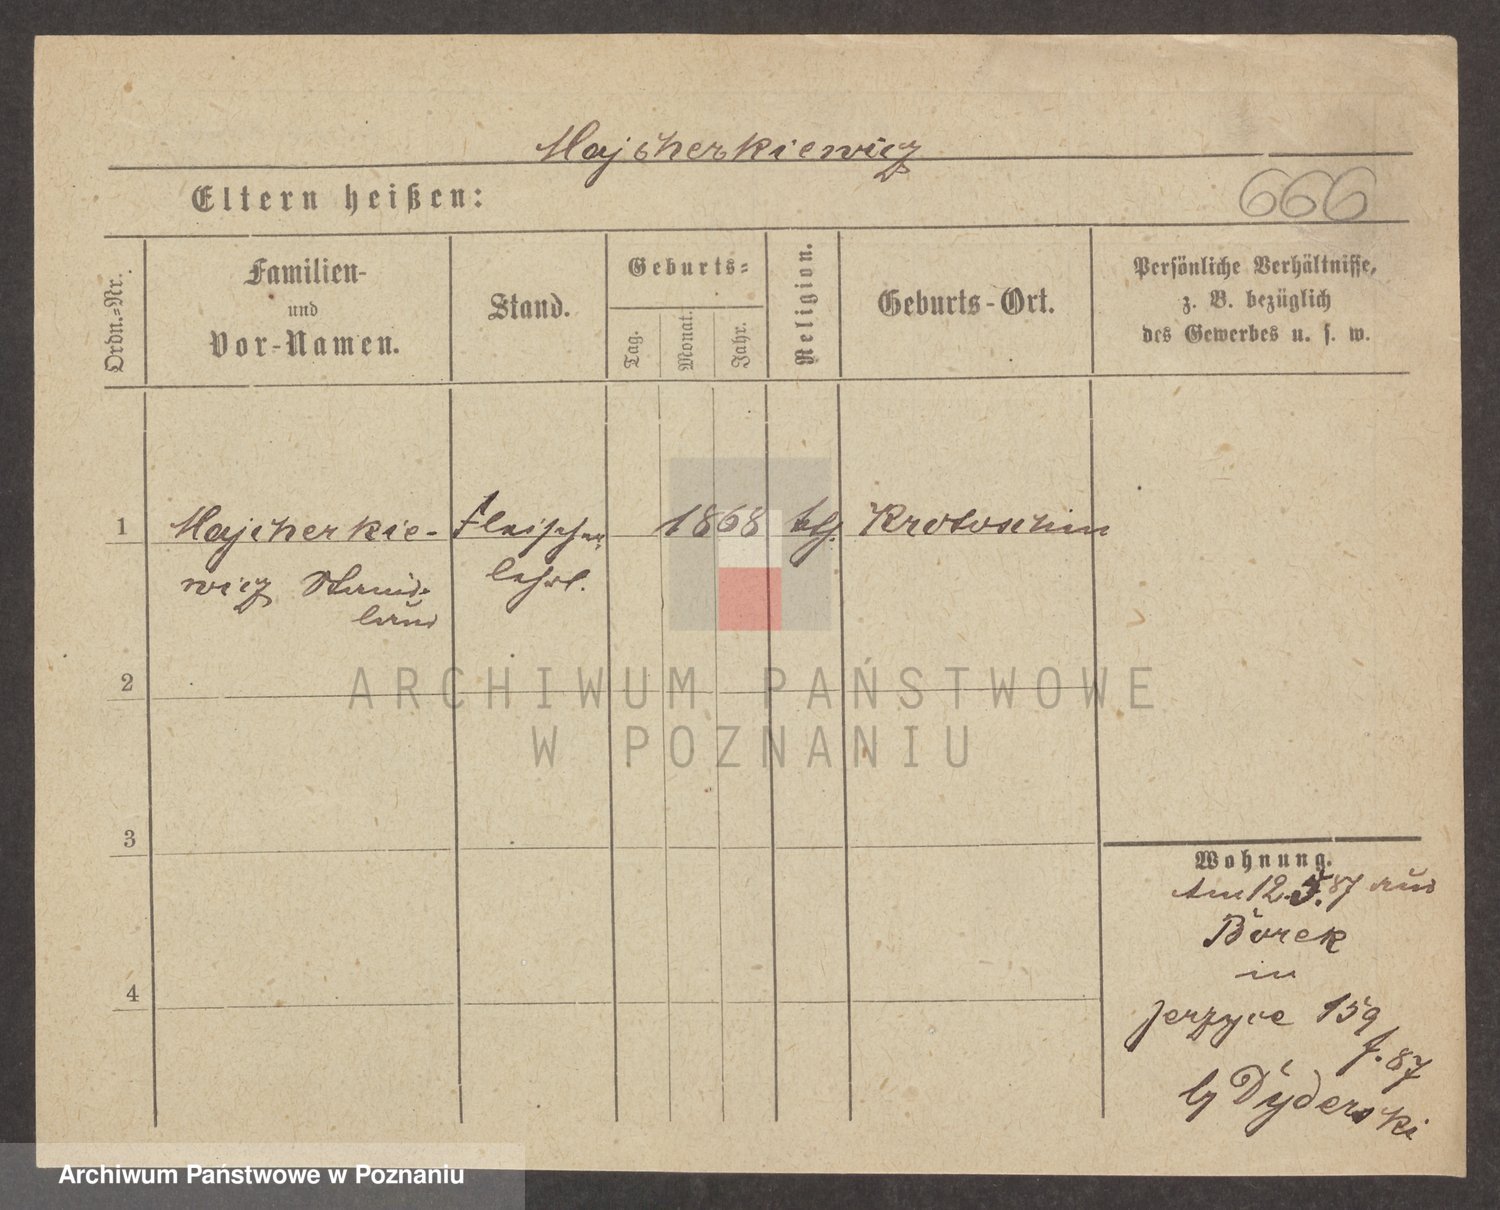 Majcherkiewicz
Eltern heißen:
666
Ordn.-Nr.
Familien-
und
Vor-Namen.
Stand.
Geburts-
Tag.
Monat.
Jahr.
Religion.
Geburts-Ort.
Persönliche Verhältnisse,
z. B. bezüglich
des Gewerbes u. s. w.
1 Majcherkie- Fleischer 1868 kth. Krotoschin
wicz Stanis- lehrl.
laus
2
ARCHIWUM PAŃSTWOWE
W POZNANIU
3
Wohnung.
Am 12. 5. 87 aus
Borek
in
4
Jerzyce 159
f. 87
by Dyderski
Archiwum Państwowe w Poznaniu